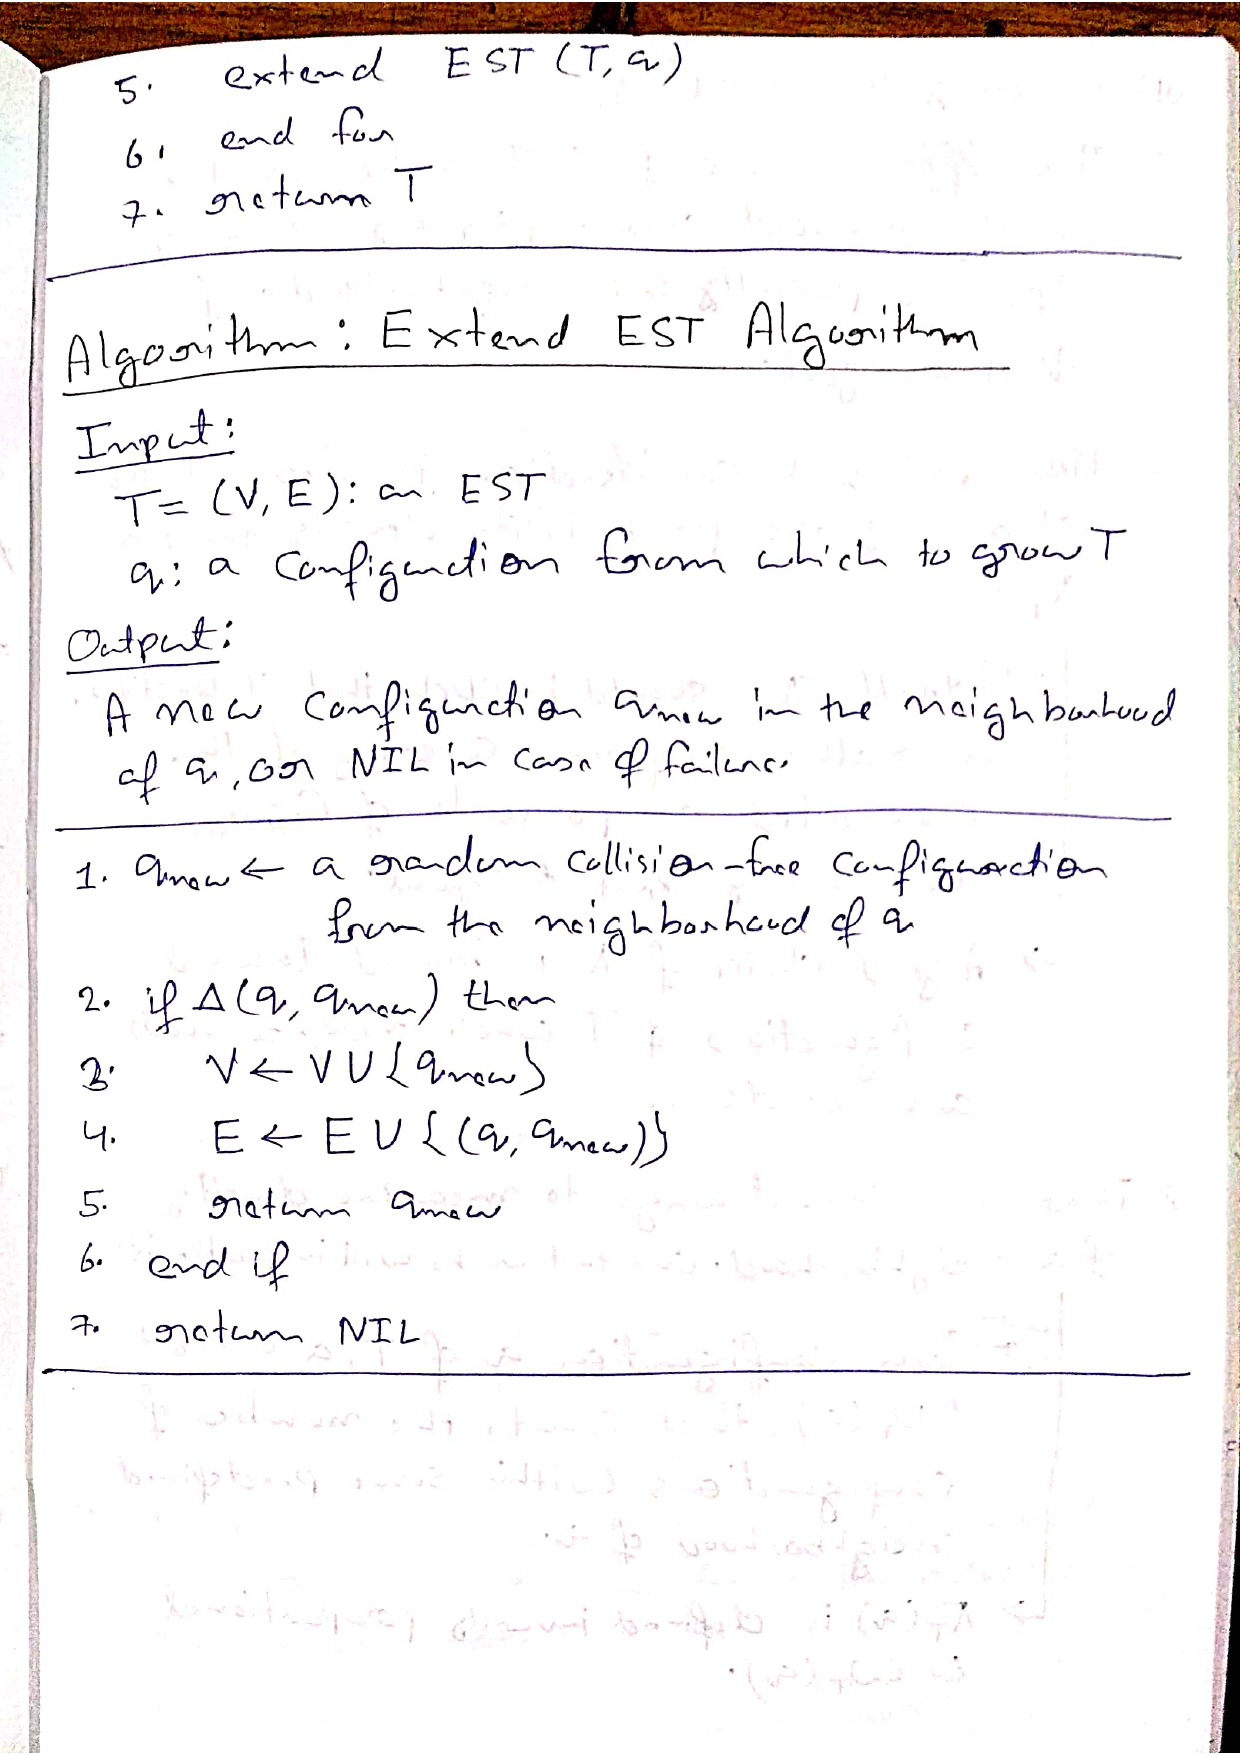 5. extend EST (T, q)
6. end for
7. return T
Algorithm: Extend EST Algorithm
Input:
T= (V, E): an EST
q: a configuration from which to grow T
Output:
A new configuration qnew in the neighborhood
of q, or NIL in case of failure.
1. qnew ← a random collision-free configuration
from the neighborhood of q
2. if Δ(q, qnew) then
3. V ← V U {qnew}
4. E ← E U {(q, qnew)}
5. return qnew
6. end if
7. return NIL